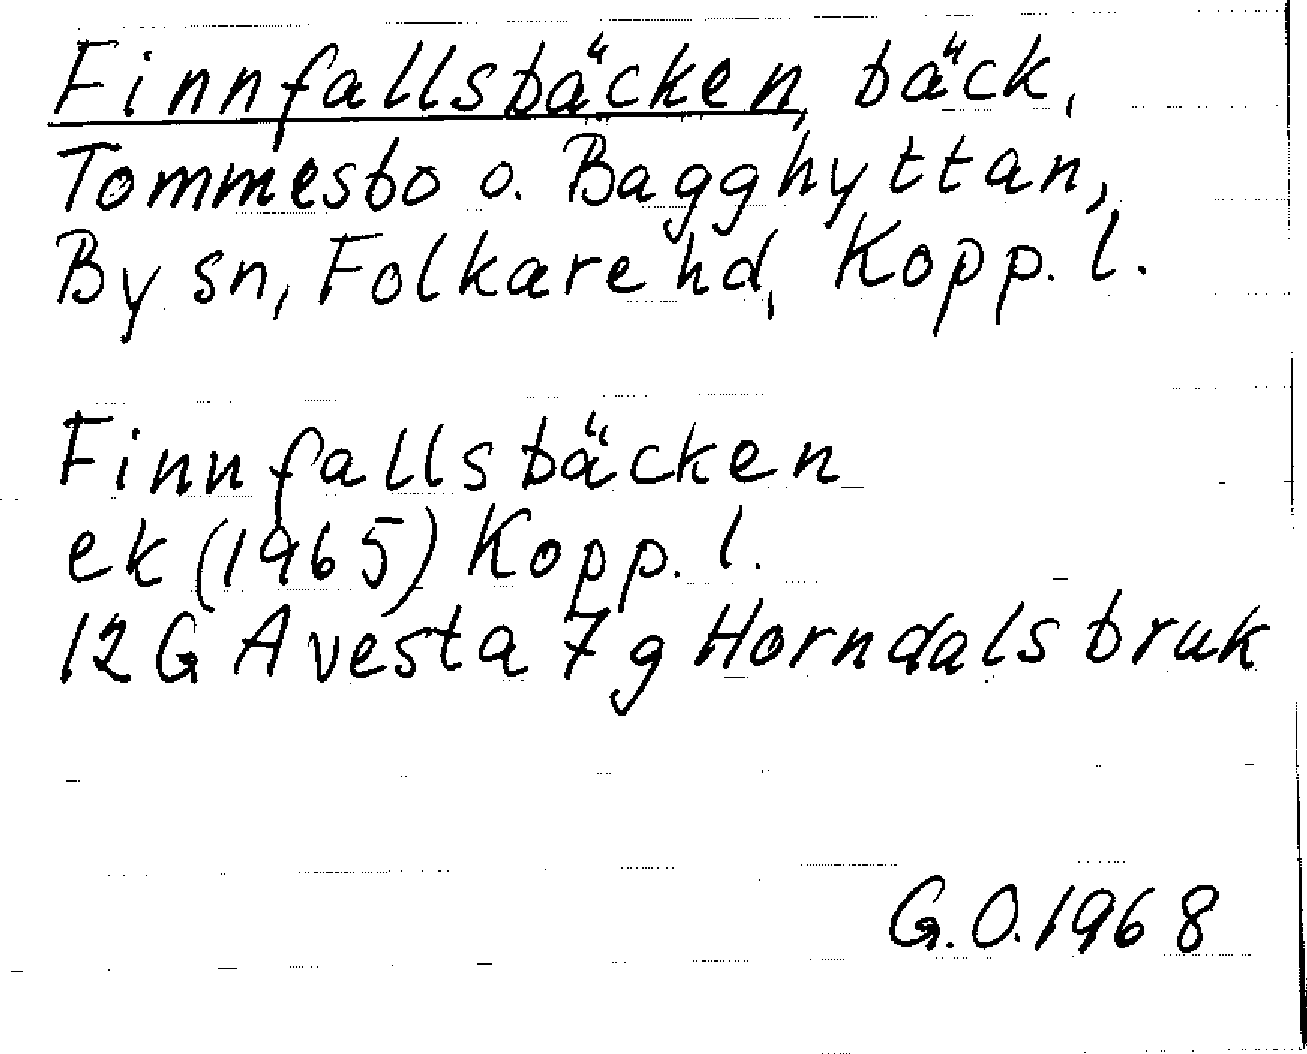 Finnfallsbäcken, bäck,
Tommesbo o. Bagghyttan,
By sn, Folkare hd, Kopp. l.
Finnfallsbäcken
ek (1965) Kopp. l.
12 G Avesta 7 g Horndals bruk
G.O. 1968